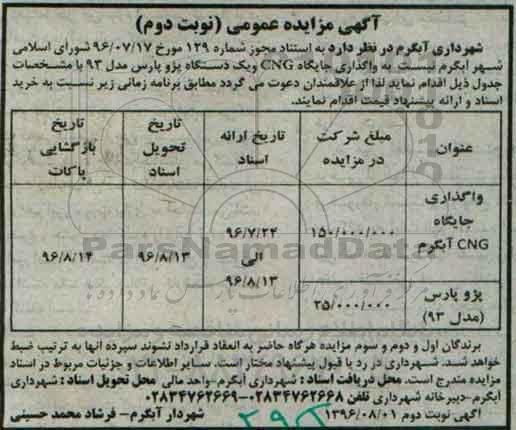 آگهی مزایده عمومی (نوبت دوم)
شهرداری آبگرم در نظر دارد به استناد مجوز شماره ۱۲۹ مورخ ۹۶/۰۷/۱۷ شورای اسلامی
شهر آبگرم نسبت به واگذاری جایگاه CNG ویک دستگاه پژو پارس مدل ۹۳ با مشخصات
جدول ذیل اقدام نماید لذا از علاقمندان دعوت می گردد مطابق برنامه زمانی زیر نسبت به خرید
اسناد و ارائه پیشنهاد قیمت اقدام نمایند.
عنوان
مبلغ شرکت در مزایده
تاریخ ارائه اسناد
تاریخ تحویل اسناد
تاریخ بازگشایی پاکات
واگذاری جایگاه CNG آبگرم
۱۵۰/۰۰۰/۰۰۰
۹۶/۷/۲۴ الی ۹۶/۸/۱۳
۹۶/۸/۱۳
۹۶/۸/۱۴
پژو پارس (مدل ۹۳)
۲۵/۰۰۰/۰۰۰
ParsNamadData
مرکز فرآوری اطلاعات پارس نماد داده ها
برندگان اول و دوم و سوم مزایده هرگاه حاضر به انعقاد قرارداد نشوند سپرده آنها به ترتیب ضبط
خواهد شد. شهرداری در رد یا قبول پیشنهاد مختار است. سایر اطلاعات و جزئیات مربوط در اسناد
مزایده مندرج است. محل دریافت اسناد : شهرداری آبگرم-واحد مالی محل تحویل اسناد : شهرداری
آبگرم-دبیرخانه شهرداری تلفن ۰۲۸۳۴۷۶۲۶۶۸-۰۲۸۳۴۷۶۲۶۶۹
آگهی نوبت دوم ۱۳۹۶/۰۸/۰۱ شهردار آبگرم- فرشاد محمد حسینی